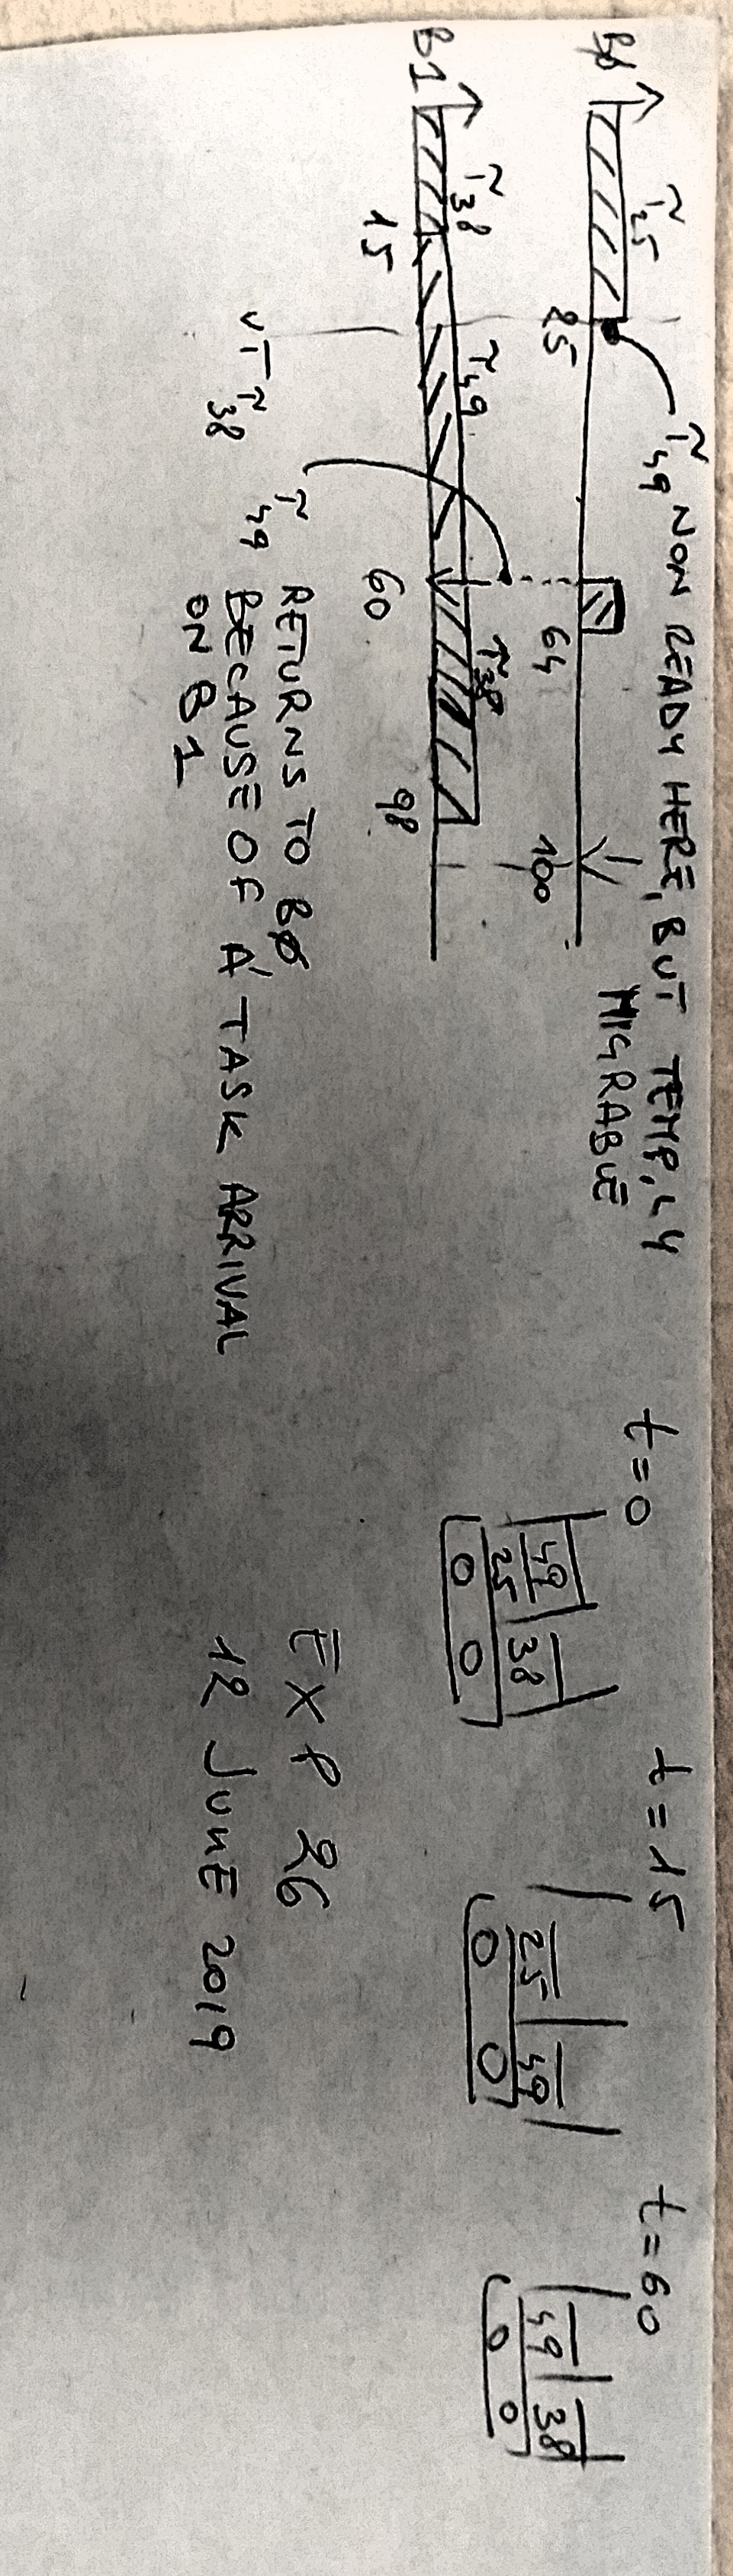 τ49 NON READY HERE, BUT TEMP.LY
MIGRABLE
BØ
τ25
25
64
100
B1
τ38
τ49
τ38
15
60
98
VT τ38
τ49 RETURNS TO BØ,
BECAUSE OF A TASK ARRIVAL
ON B1
t=0
49
25
38
0 0
t=15
25
49
0 0
t=60
49
38
0 0
EXP 26
12 JUNE 2019